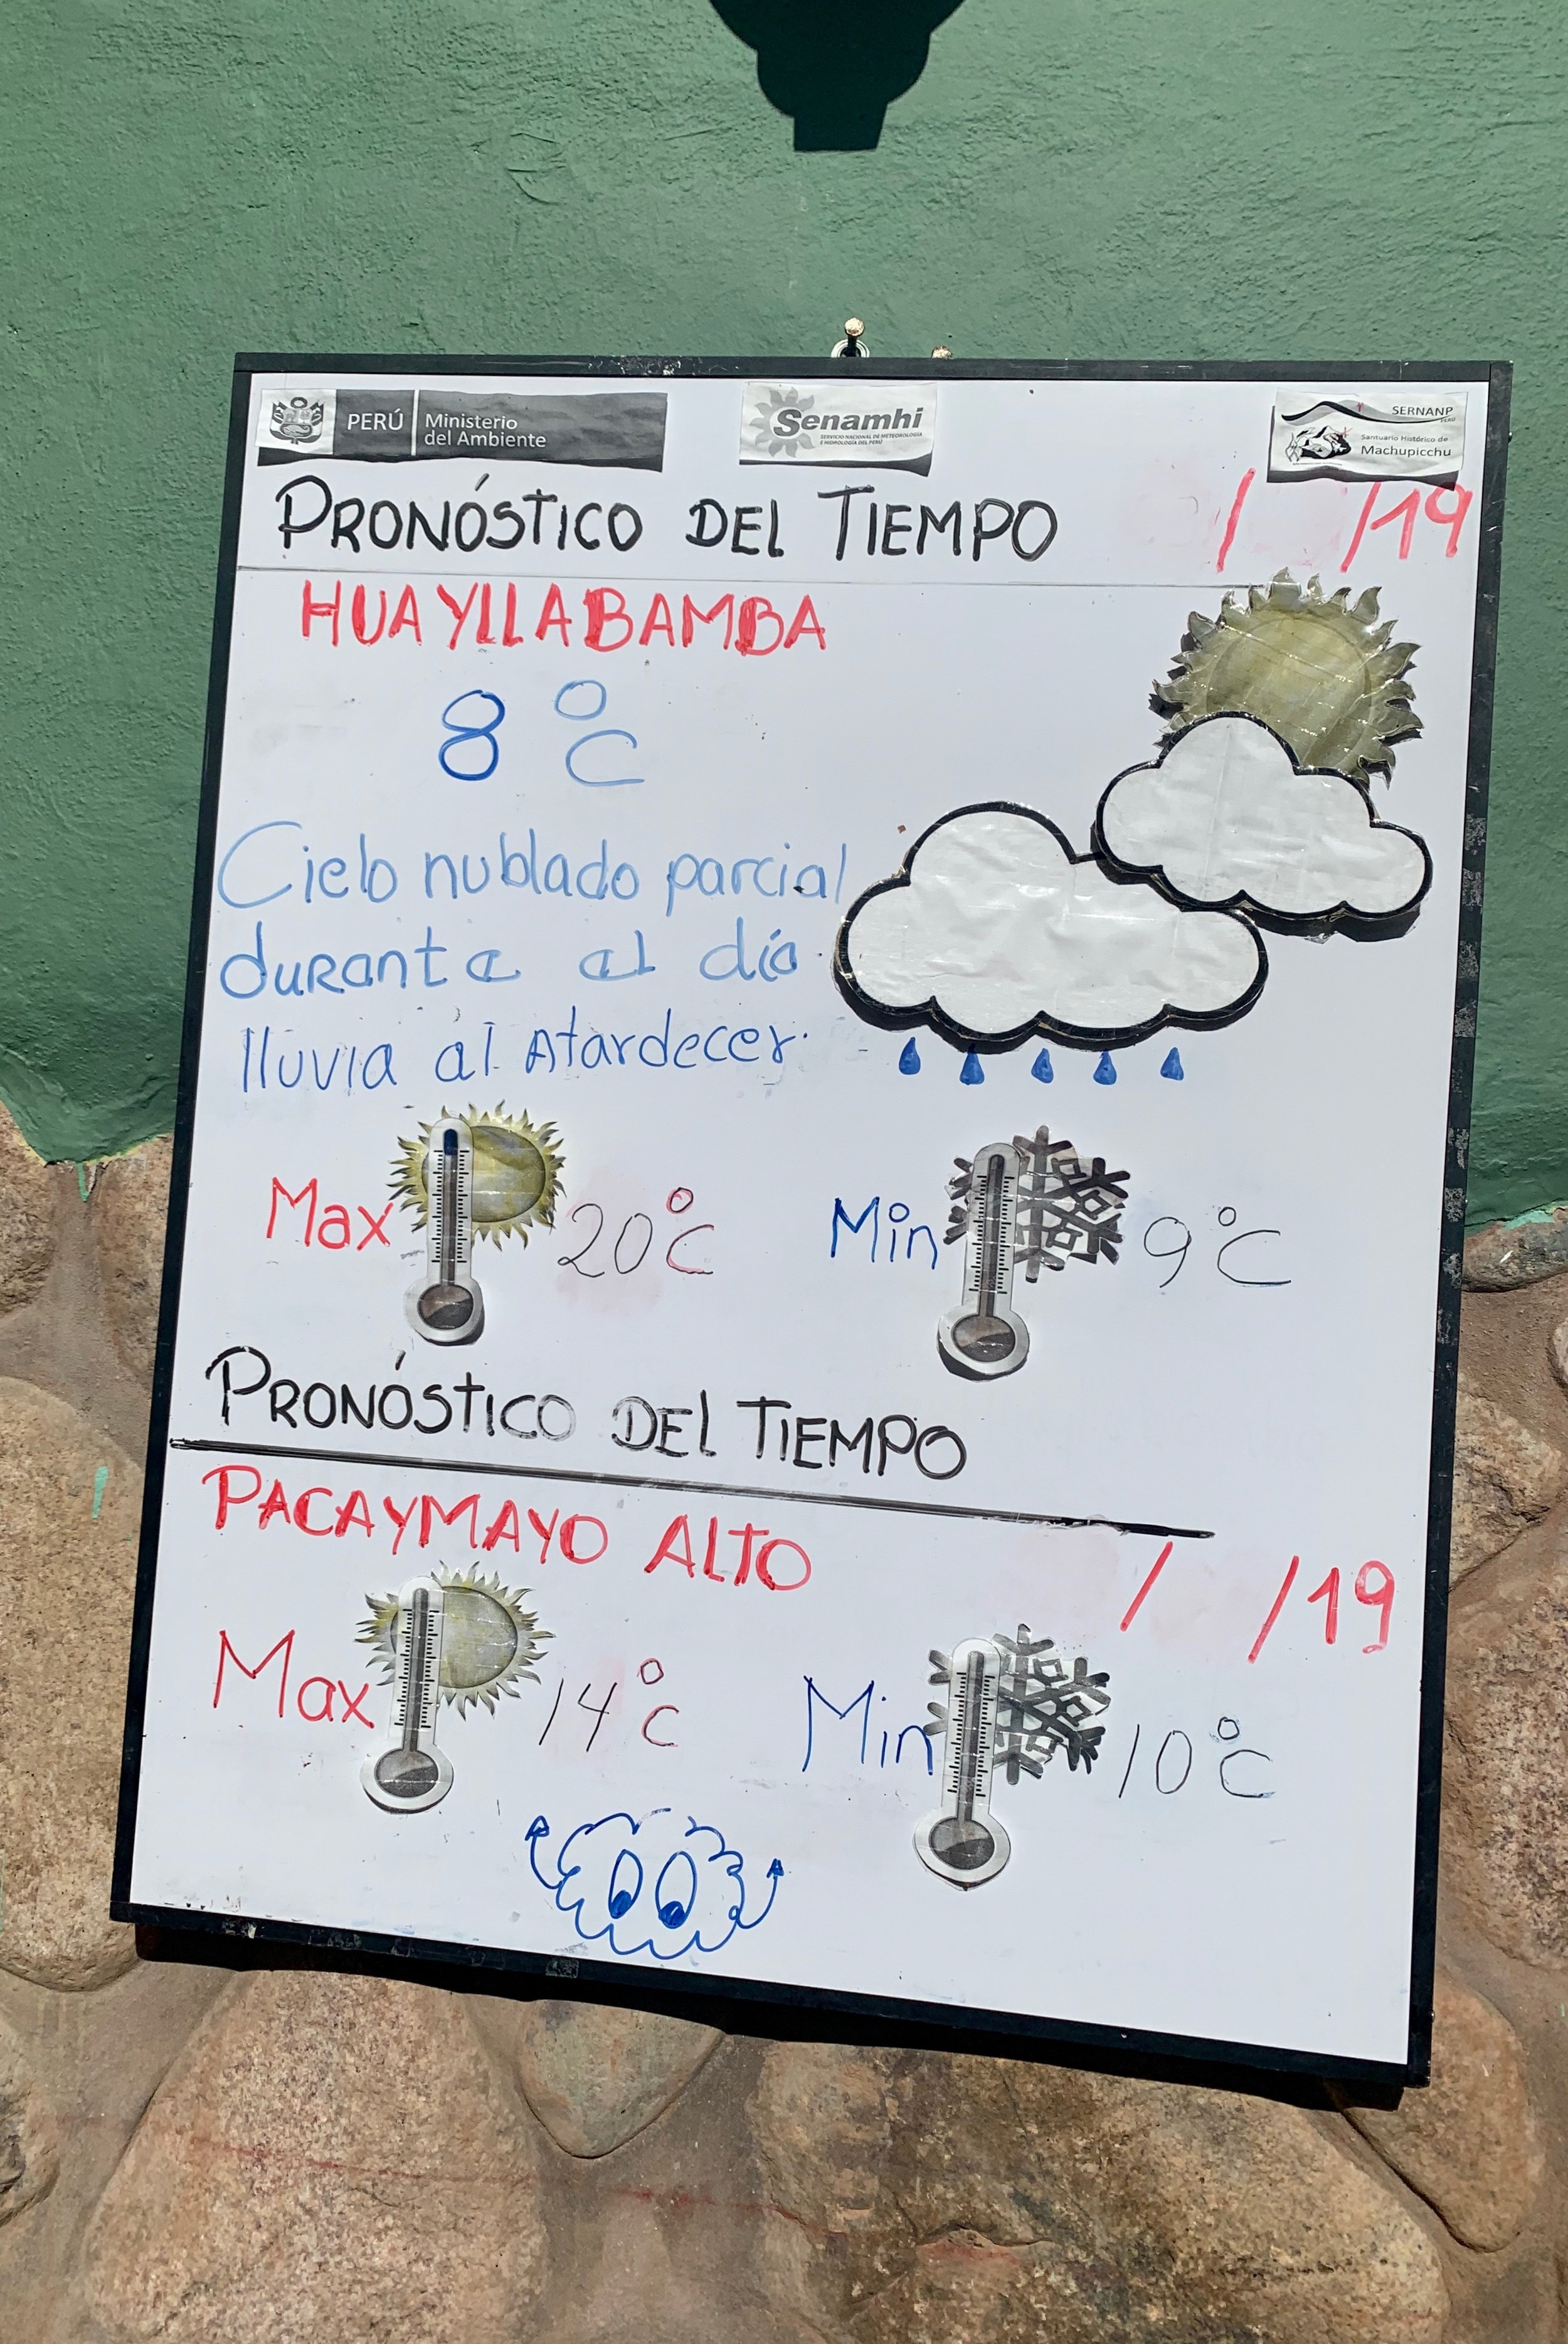 PERÚ Ministerio del Ambiente
Senamhi
SERVICIO NACIONAL DE METEOROLOGÍA
E HIDROLOGÍA DEL PERÚ
SERNANP
PERÚ
Santuario Histórico de
Machupicchu
PRONÓSTICO DEL TIEMPO / /19
HUAYLLABAMBA
8 °C
Cielo nublado parcial
durante el día.
lluvia al Atardecer.
Max 20°C Min 9°C
PRONÓSTICO DEL TIEMPO
PACAYMAYO ALTO / /19
Max 14°C Min 10°C